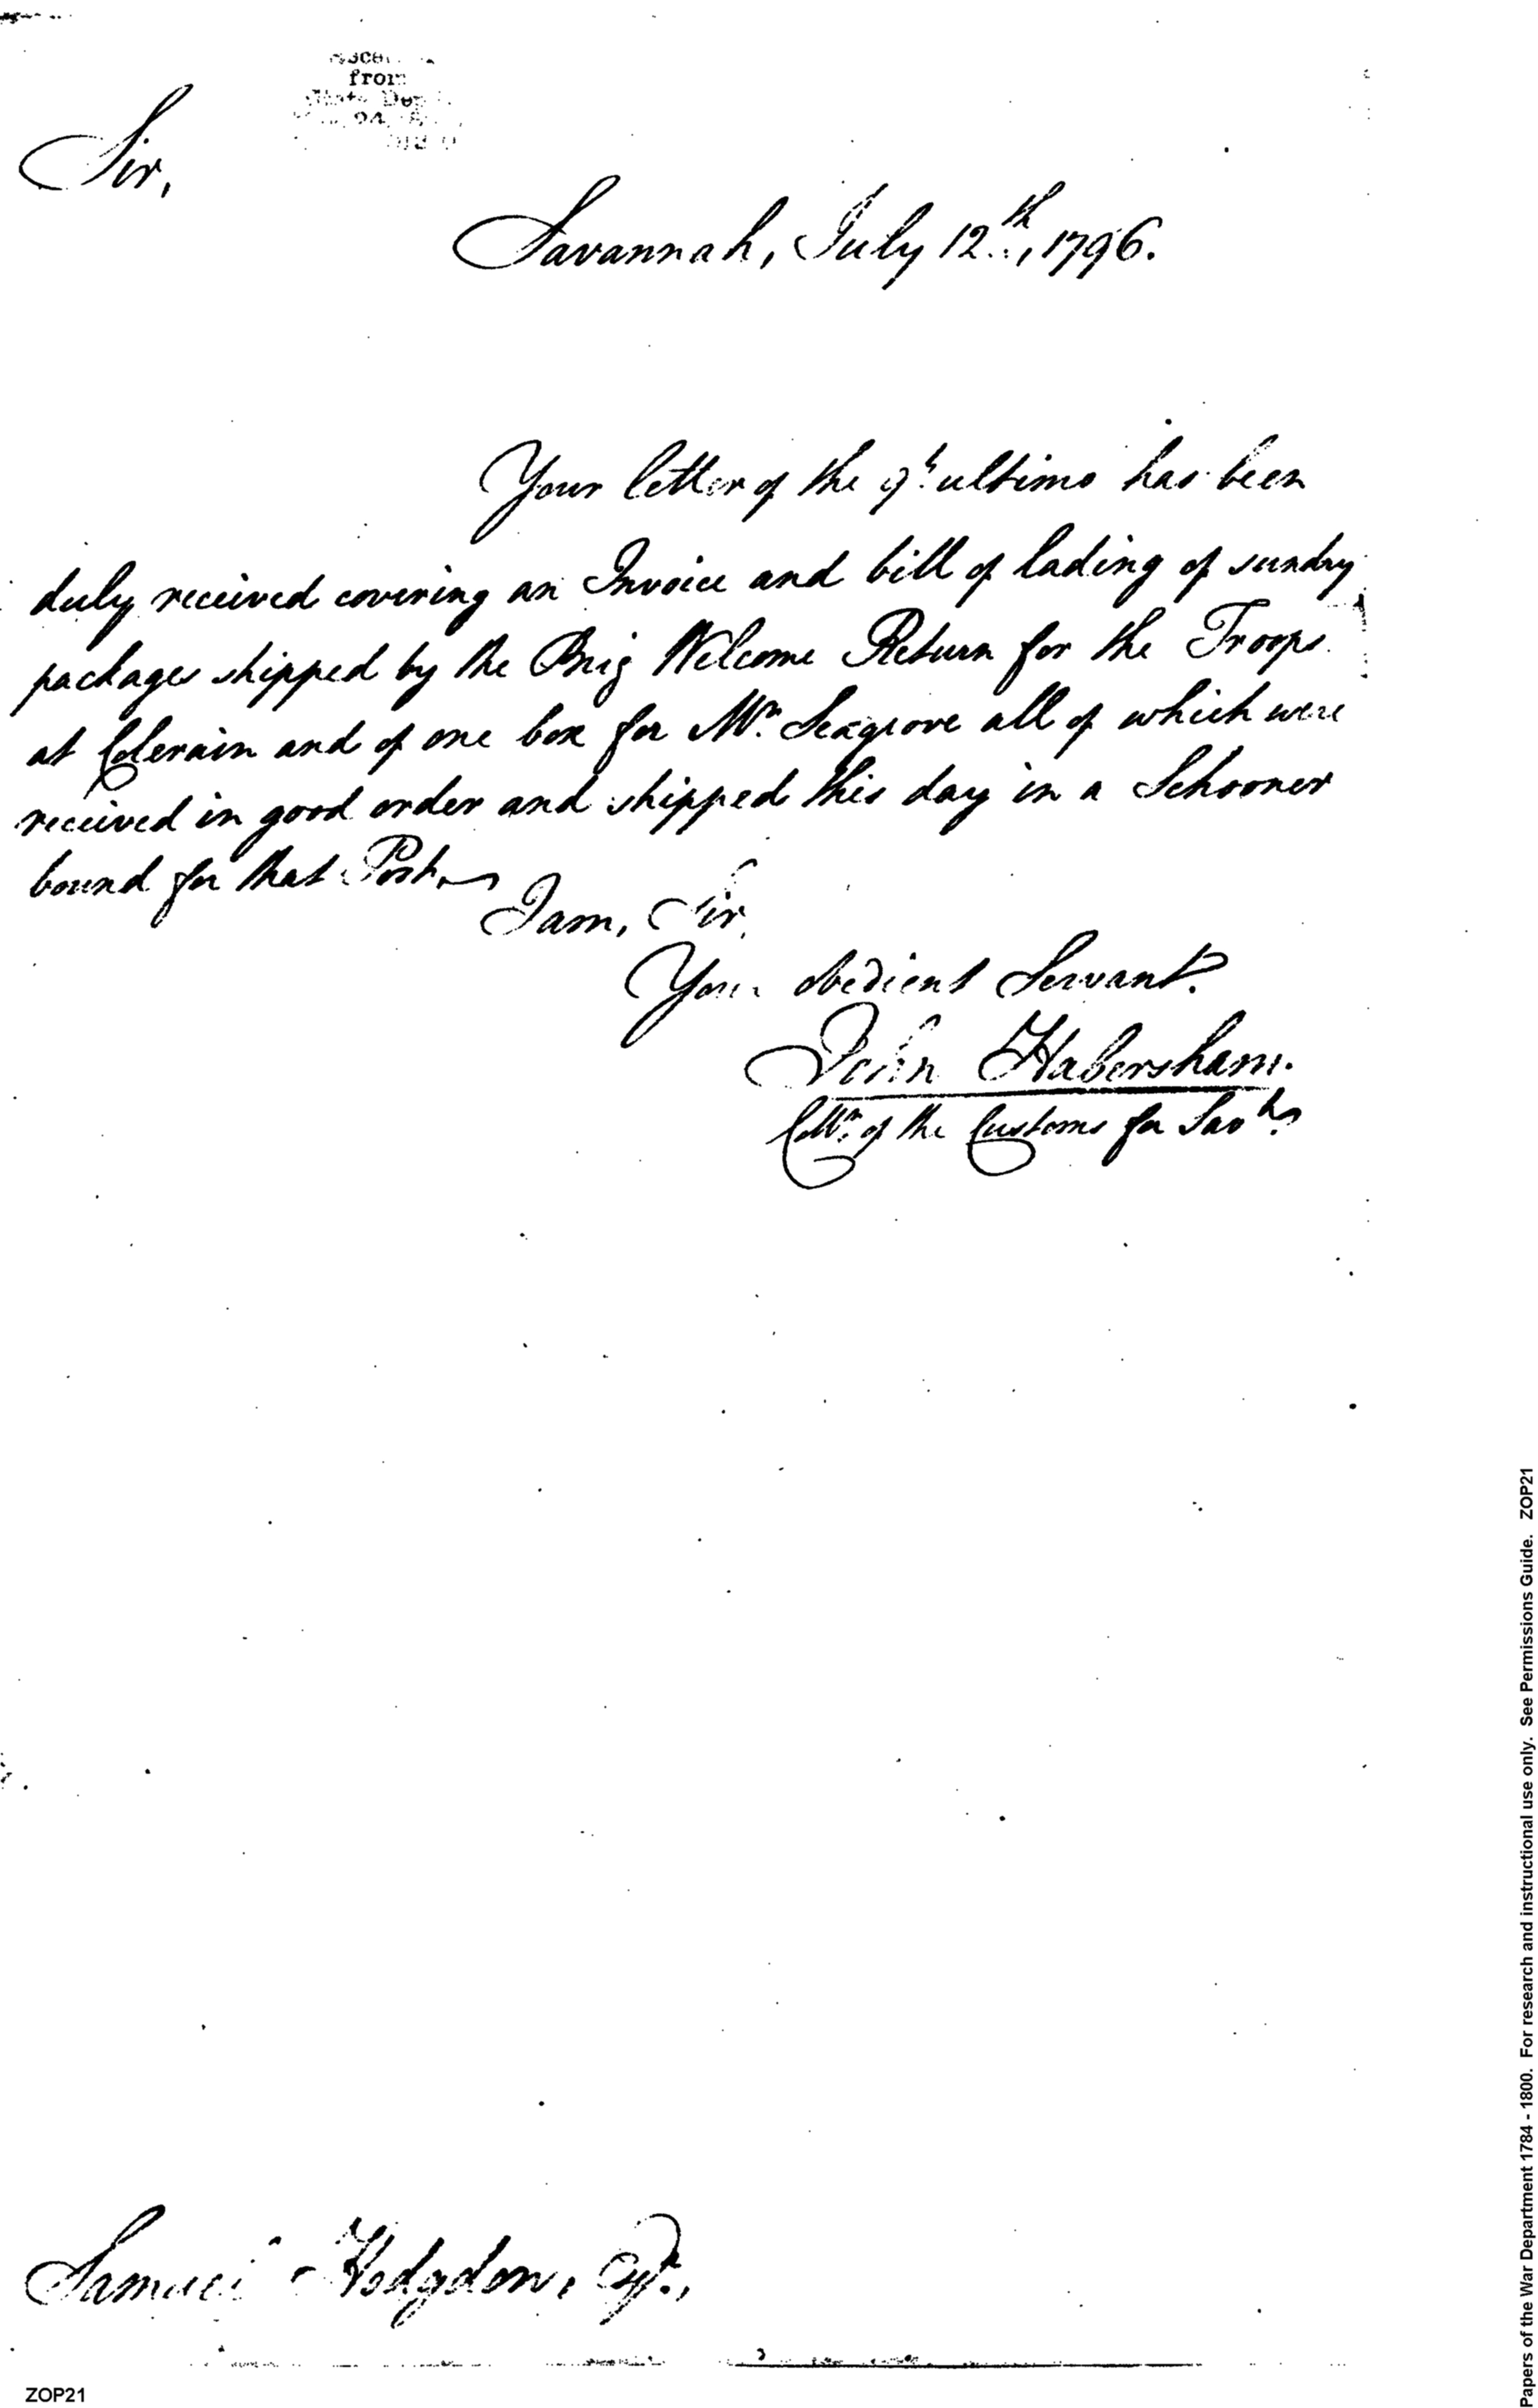 from
Sir,
Savannah, July 12th, 1796.
Your letter of the 9th ultimo has been
duly received covering an Invoice and bill of lading of sundry
packages shipped by the Brig Welcome Return for the Troops
at Colerain and of one box for Mr. Seagrove all of which were
received in good order and shipped this day in a Schooner
bound for that Post.
I am, Sir,
Your obedient Servant.
John Habersham.
Collr. of the Customs for Savh.
Samuel Hodgdon, Esqr.,
ZOP21
Papers of the War Department 1784 - 1800. For research and instructional use only. See Permissions Guide. ZOP21